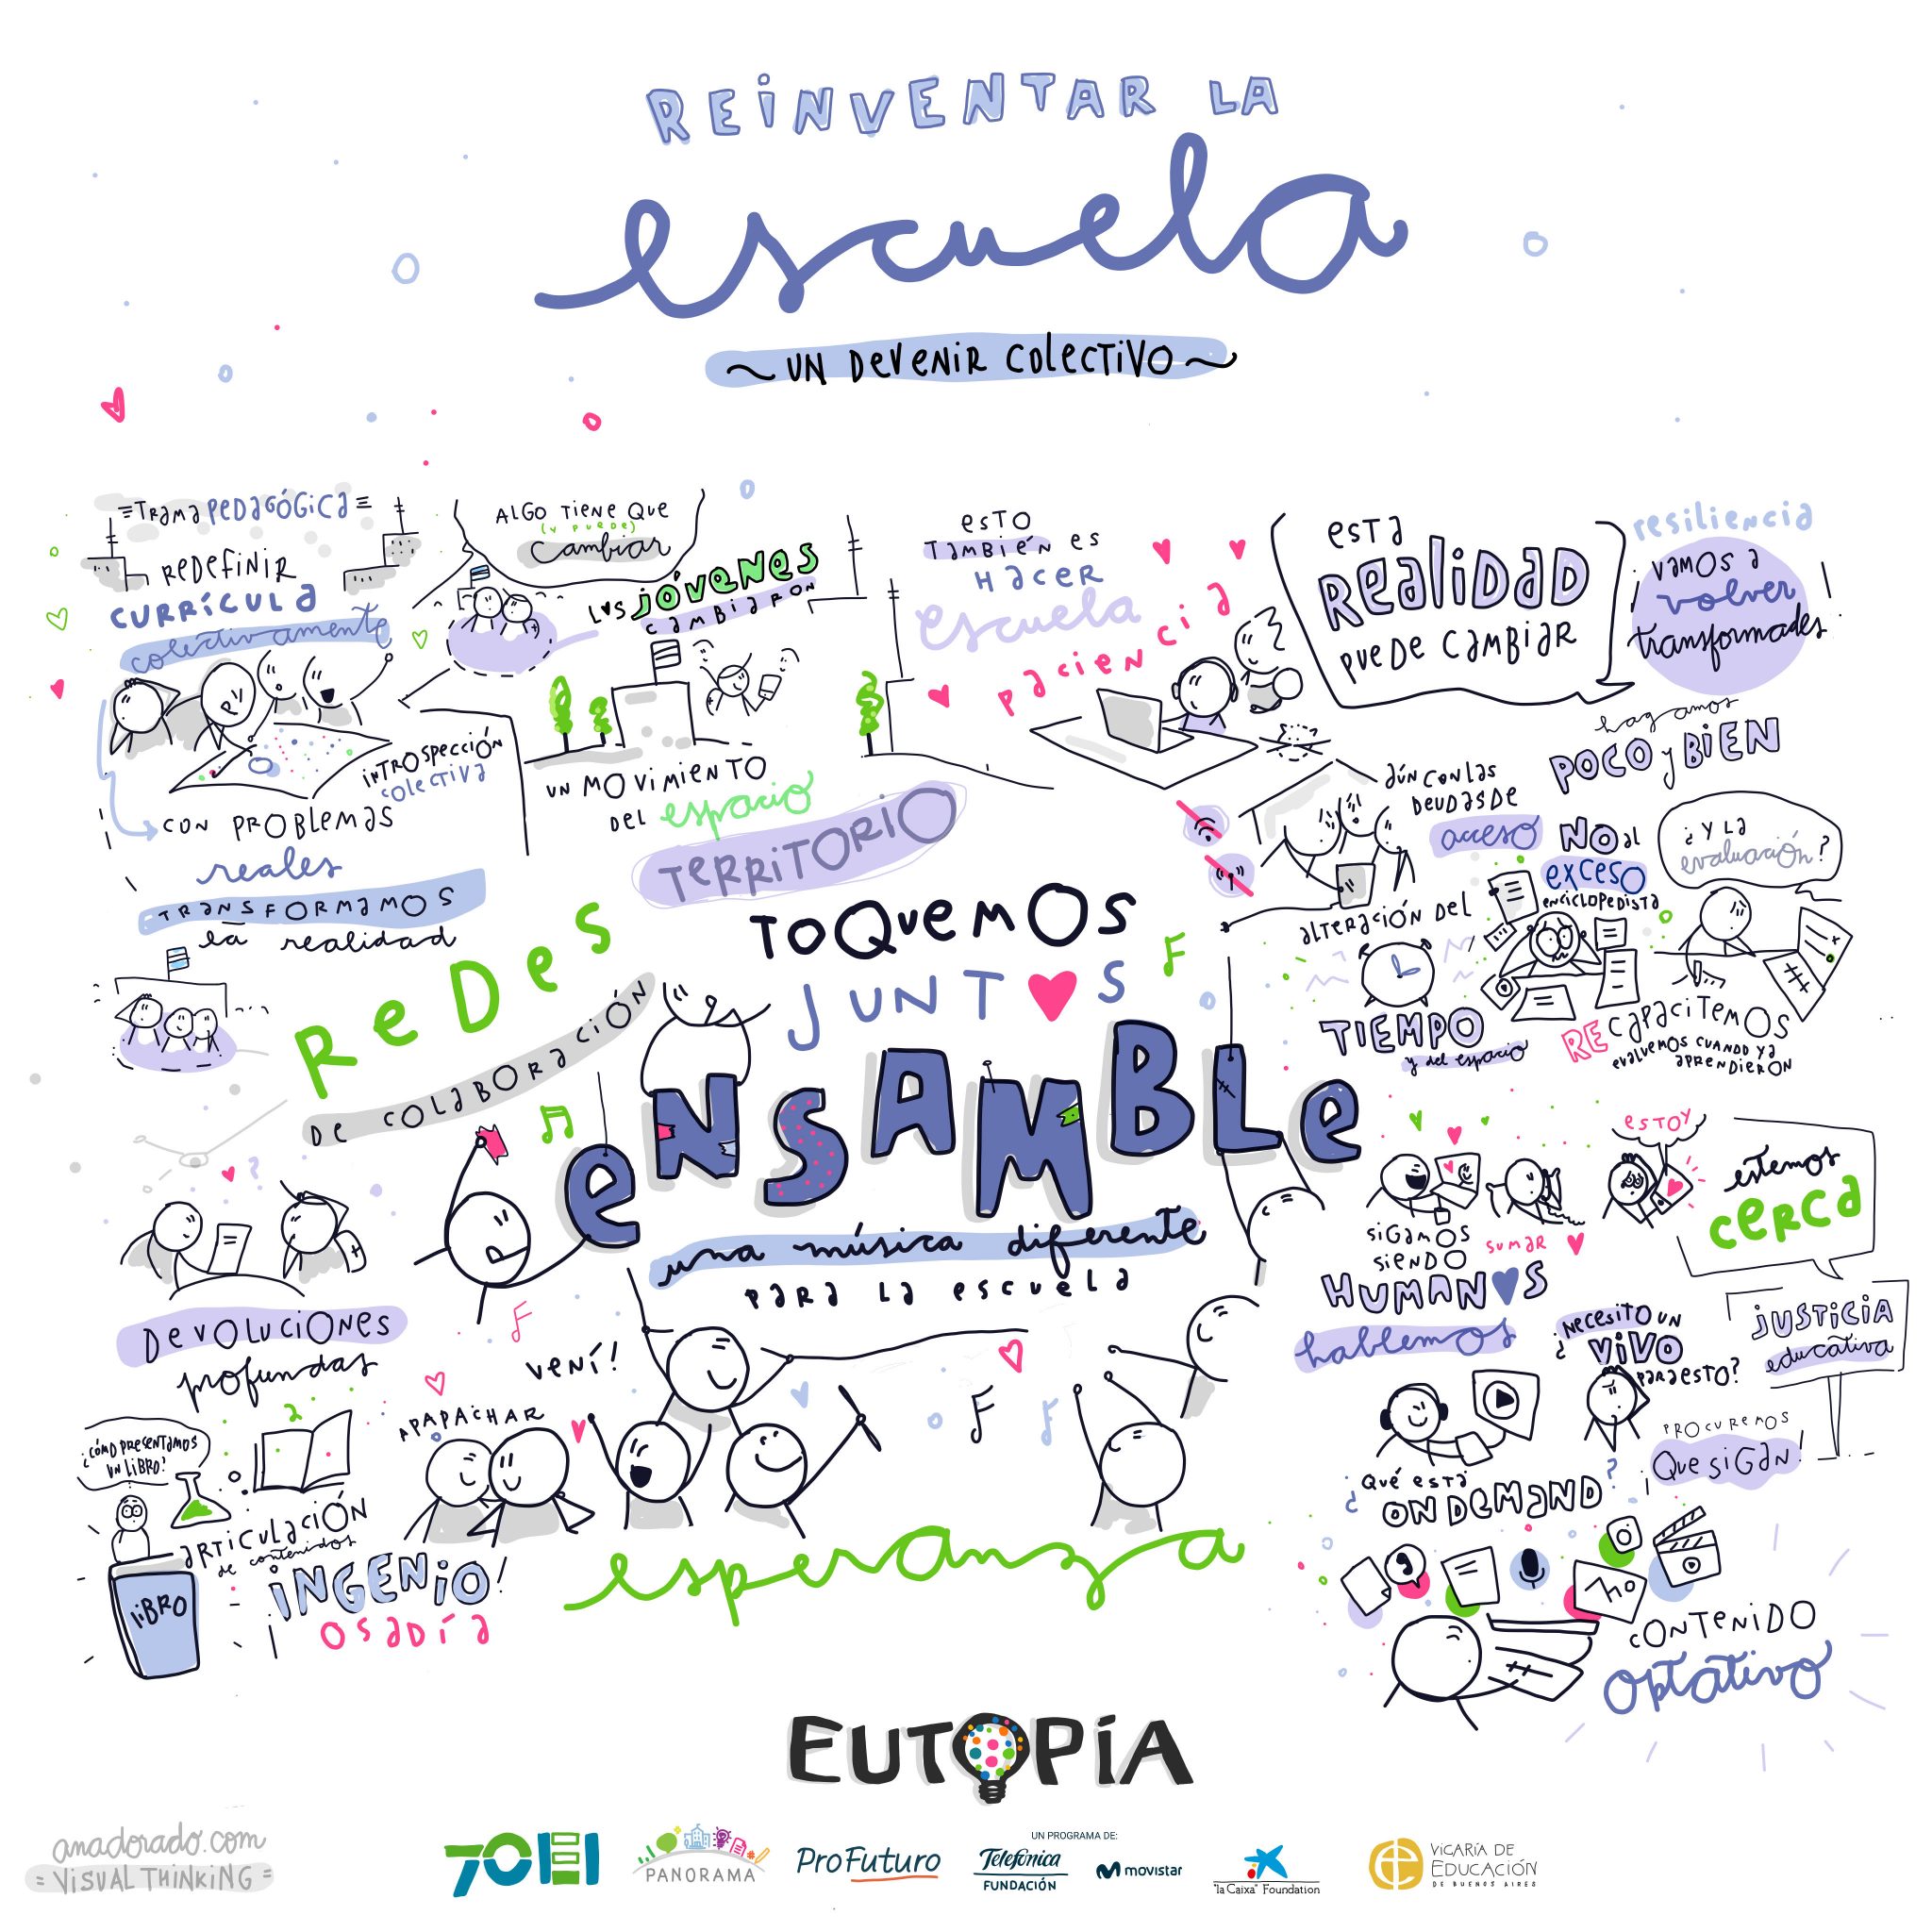 REINVENTAR LA
escuela
~ UN DEVENIR COLECTIVO ~
TRAMA PEDAGÓGICA
REDEFINIR
CURRÍCULA
colectivamente
INTROSPECCIÓN
COLECTIVA
CON PROBLEMAS
reales
TRANSFORMAMOS
la realidad
ALGO TIENE QUE
(y PUEDE)
cambiar
L♥S JÓVENES
CAMBIARON
UN MOVIMIENTO
DEL espacio
TERRITORIO
ESTO
TAMBIÉN ES
HACER
escuela
PACIENCIA
ESTA
REALIDAD
PUEDE CAMBIAR
resiliencia
¡VAMOS A
volver
transformades!
hagamos
POCO y BIEN
AÚN CON LAS
DEUDAS DE
acceso
NO al
EXCESO
ENCICLOPEDISTA
¿Y LA
evaluación?
ALTERACIÓN DEL
TIEMPO
y del espacio
RECAPACITEMOS
EVALUEMOS CUANDO YA
APRENDIERON
REDES
DE COLABORACIÓN
TOQUEMOS
JUNT♥S
ENSAMBLE
una música diferente
PARA LA ESCUELA
DEVOLUCIONES
profundas
¿CÓMO PRESENTAMOS
UN LIBRO?
LIBRO
ARTICULACIÓN
de contenidos
INGENIO!
OSADÍA
APAPACHAR
VENÍ!
esperanza
SIGAMOS
SIENDO
HUMAN♥S
SUMAR
hablemos
ESTOY
estemos
CERCA
JUSTICIA
educativa
¿NECESITO UN
VIVO
PARA ESTO?
PROCUREMOS
¡QUE SIGAN!
¿QUÉ ESTÁ
ON DEMAND?
CONTENIDO
optativo
EUTOPÍA
anadorado.com
= VISUAL THINKING =
70
PANORAMA
ProFuturo
UN PROGRAMA DE:
Telefónica
FUNDACIÓN
movistar
"la Caixa" Foundation
VICARÍA DE
EDUCACIÓN
DE BUENOS AIRES